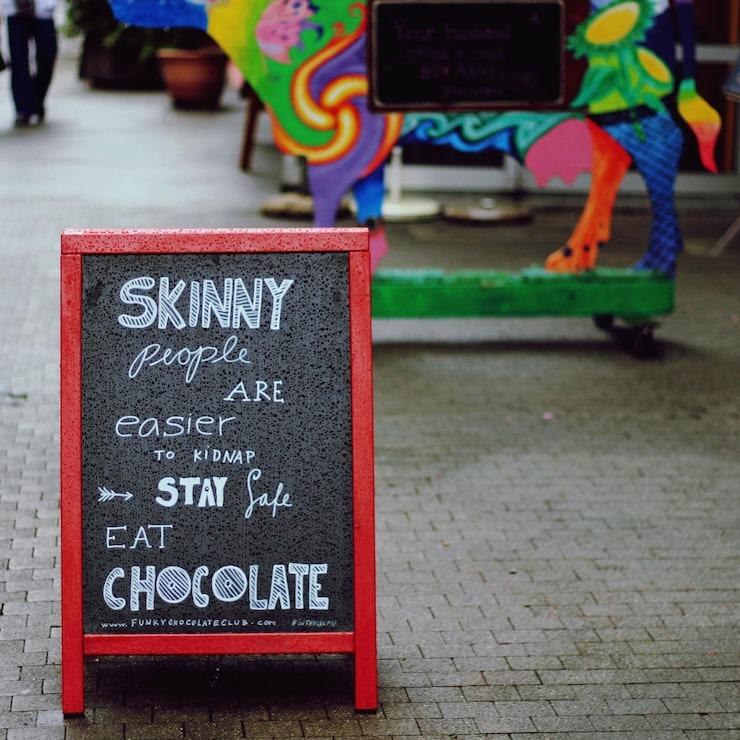 Your husband
SKINNY
people
ARE
easier
TO KIDNAP
STAY Safe
EAT
CHOCOLATE
www.FUNKYCHOCOLATECLUB.com #INTERLAKEN